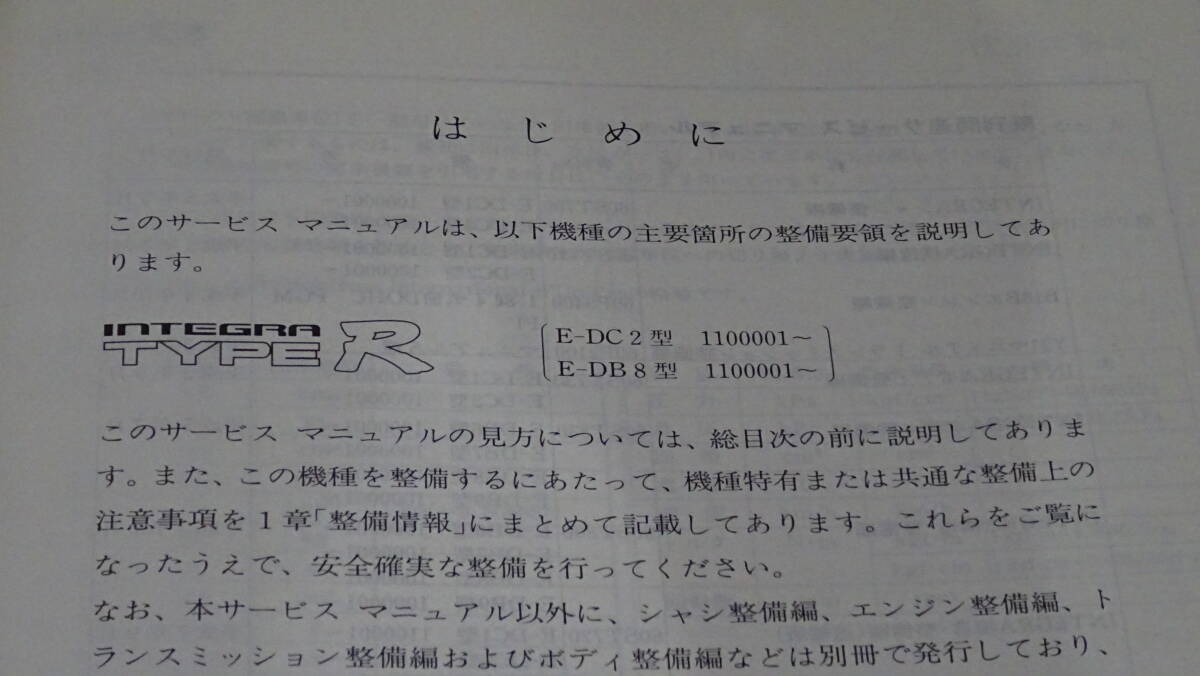 は じ め に
このサービス マニュアルは、以下機種の主要箇所の整備要領を説明してあ
ります。
INTEGRA
TYPE R
E-DC2型 1100001～
E-DB8型 1100001～
このサービス マニュアルの見方については、総目次の前に説明してありま
す。また、この機種を整備するにあたって、機種特有または共通な整備上の
注意事項を1章「整備情報」にまとめて記載してあります。これらをご覧に
なったうえで、安全確実な整備を行ってください。
なお、本サービス マニュアル以外に、シャシ整備編、エンジン整備編、ト
ランスミッション整備編およびボディ整備編などは別冊で発行しており、